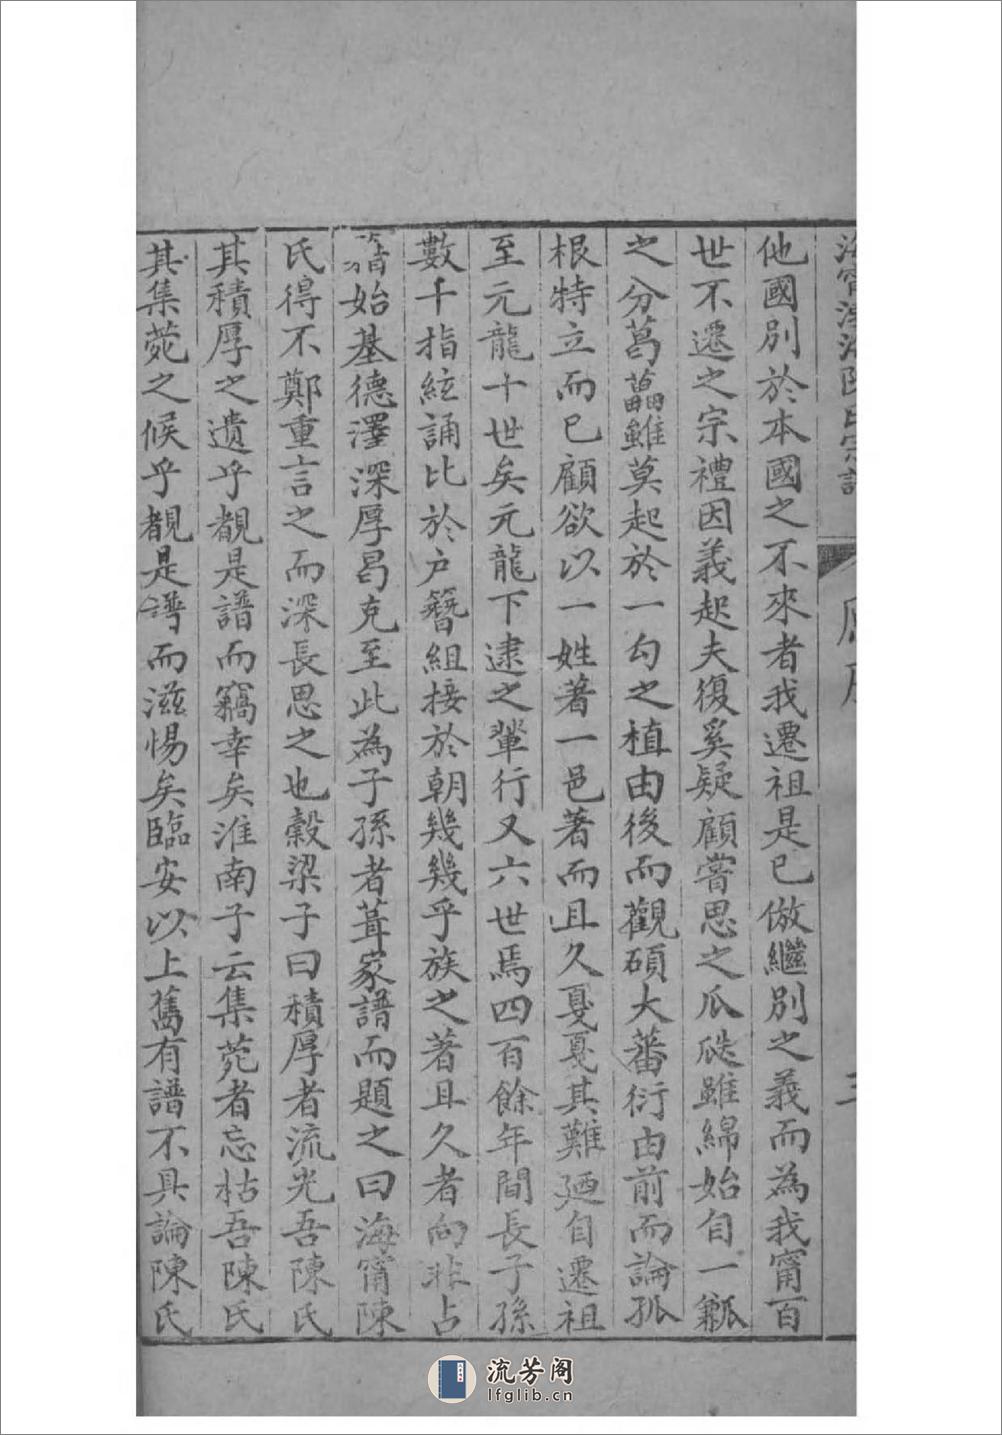 海寧渤海陳氏宗譜
原序
三
他國別於本國之不來者我遷祖是已倣繼別之義而為我甯百
世不遷之宗禮因義起夫復奚疑顧嘗思之瓜瓞雖綿始自一瓤
之分葛藟雖莫起於一勾之植由後而觀碩大蕃衍由前而論孤
根特立而已顧欲以一姓著一邑著而且久戛戛其難廼自遷祖
至元龍十世矣元龍下逮之輩行又六世焉四百餘年間長子孫
數千指絃誦比於户簪組接於朝幾幾乎族之著且久者向非占
籍始基德澤深厚曷克至此為子孫者葺家譜而題之曰海甯陳
氏得不鄭重言之而深長思之也穀梁子曰積厚者流光吾陳氏
其積厚之遺乎覩是譜而竊幸矣淮南子云集菀者忘枯吾陳氏
其集菀之候乎覩是譜而滋惕矣臨安以上舊有譜不具論陳氏
流芳阁
lfglib.cn